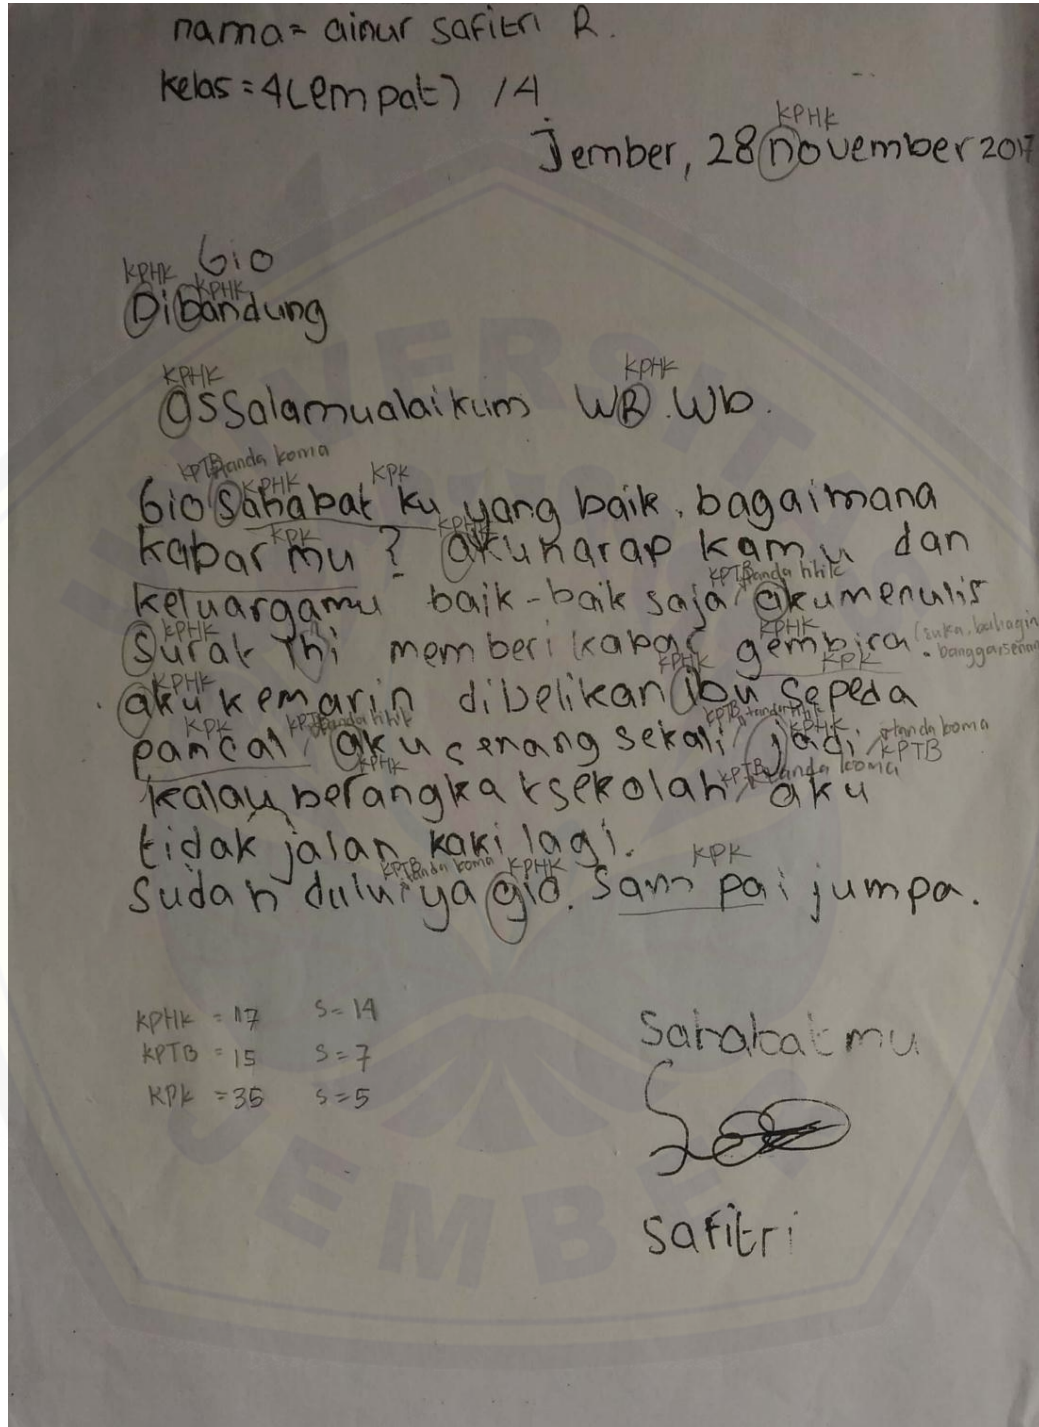 nama= ainur safitri R.
kelas=4(empat) /A
KPHK
Jember, 28 november 2017
KPHK Gio
KPHK
Dibandung
KPHK KPHK
assalamualaikum WR.Wb.
KPTB tanda koma
KPHK KPK
Gio Sahabat ku yang baik, bagaimana
KPK KPHK
kabar mu? akuharap kamu dan
KPTB tanda titik
keluargamu baik-baik saja akumenulis
KPHK KPHK (suka, bahagia
Surat ini memberi kabar gembira. bangga, senang
KPHK KPHK KPK
aku kemarin dibelikan ibu sepeda
KPK KPTB tanda titik KPTB tanda titik KPHK tanda koma
pancal aku senang sekali jadi KPTB
KPHK KPTB tanda koma
kalau berangkatsekolah aku
tidak jalan kaki lagi.
KPTB tanda koma KPHK KPK
Sudah dulu ya gio. Sampai jumpa.
KPHK = 17 S=14
KPTB = 15 S=7
KPK = 35 S=5
Sahabatmu
Safitri
UNIVERSITAS
JEMBER